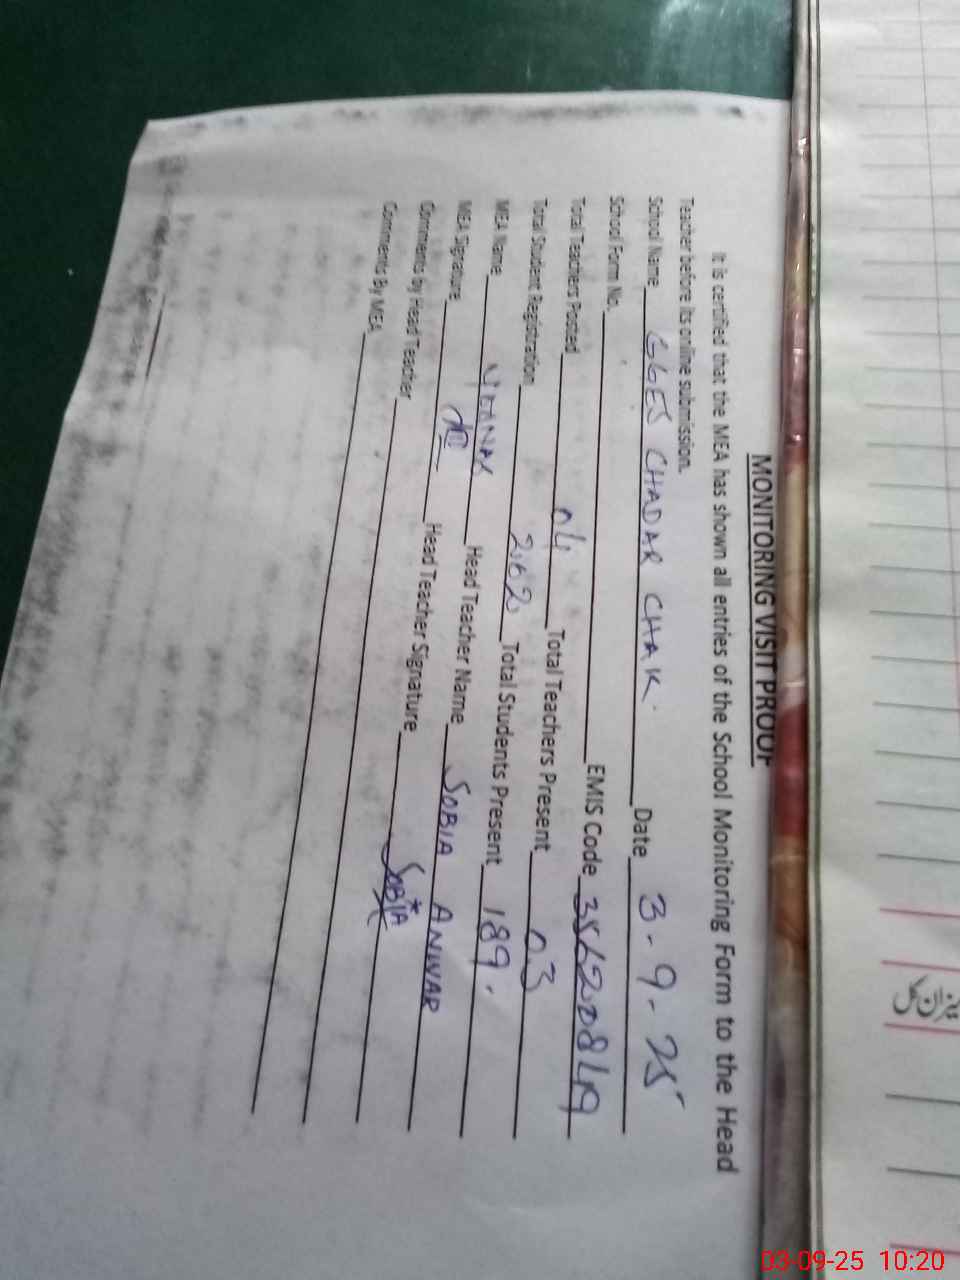 MONITORING VISIT PROOF
It is certified that the MEA has shown all entries of the School Monitoring Form to the Head
Teacher before its online submission.
School Name GGES CHADAR CHAK Date 3-9-25
School Form No. EMIS Code
Total Teachers Posted 04 Total Teachers Present 03
Total Student Registration 262 Total Students Present 189
MEA Name Head Teacher Name SOBIA ANWAR
MEA Signature Head Teacher Signature SOBIA
Comments by Head Teacher
Comments By MEA
03-09-25 10:20